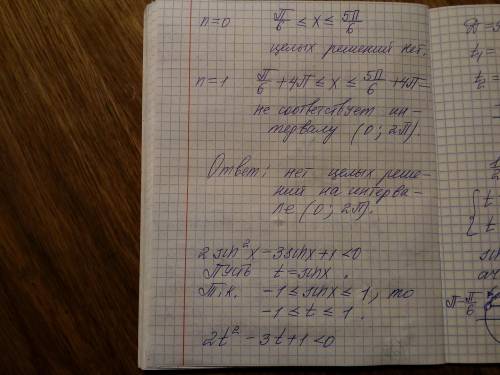 n=0 π/6 ≤ x ≤ 5π/6
целых решений нет.
n=1 π/6 +4π ≤ x ≤ 5π/6 +4π –
не соответствует ин-
тервалу (0; 2π).
Ответ: нет целых реше-
ний на интерва-
ле (0; 2π).
2sin²x – 3sinx + 1 < 0
Пусть t = sinx.
Т.к. -1 ≤ sinx ≤ 1, то
-1 ≤ t ≤ 1.
2t² – 3t + 1 < 0
t₁ =
t₂ =
{ t
t
sin
π-π/6